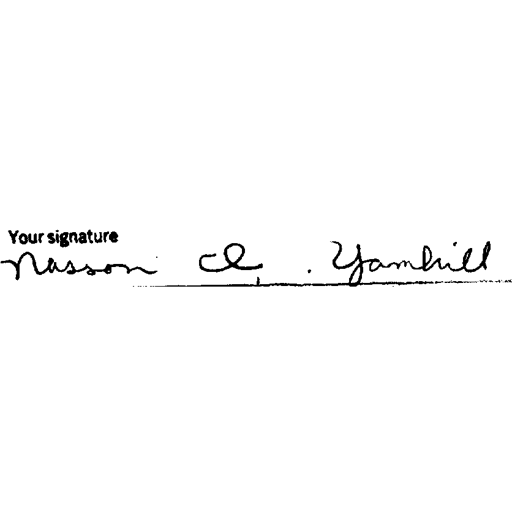 Your signature
Nasson Cl. Yamhill